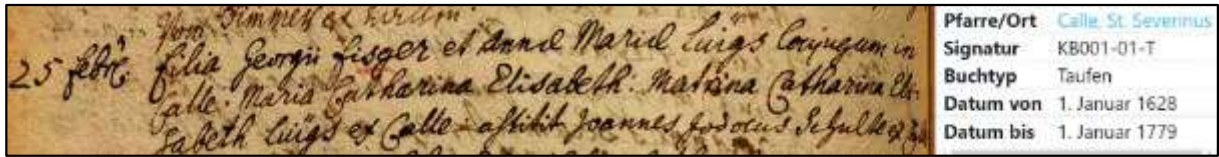 von Simmer ex
25 febr: filia Georgii fisger et Annæ Mariæ Lüigs Conjugum in
Calle: Maria Catharina Elisabeth: Matrina Catharina Eli-
sabeth Lüigs ex Calle - astitit Joannes Jodocus Schulte ex
Pfarre/Ort Calle, St. Severinus
Signatur KB001-01-T
Buchtyp Taufen
Datum von 1. Januar 1628
Datum bis 1. Januar 1779